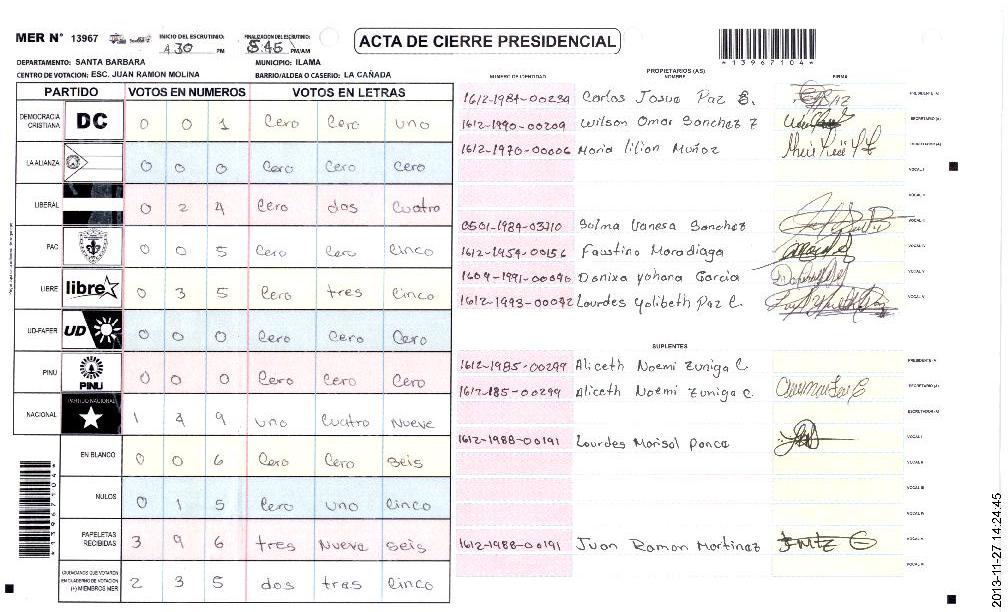 MER N° 13967
INICIO DEL ESCRUTINIO: 4 30 PM
FINALIZACION DEL ESCRUTINIO: 8:45 PM/AM
ACTA DE CIERRE PRESIDENCIAL
*13967104*
DEPARTAMENTO: SANTA BARBARA
MUNICIPIO: ILAMA
CENTRO DE VOTACION: ESC. JUAN RAMON MOLINA
BARRIO/ALDEA O CASERIO: LA CAÑADA
PARTIDO VOTOS EN NUMEROS VOTOS EN LETRAS
DEMOCRACIA CRISTIANA DC 0 0 1 Cero Cero uno
LA ALIANZA 0 0 0 Cero Cero Cero
LIBERAL 0 2 4 Cero dos Cuatro
PAC 0 0 5 Cero Cero Cinco
LIBRE libre 0 3 5 Cero tres Cinco
UD-FAPER UD 0 0 0 Cero Cero Cero
PINU PINU 0 0 0 Cero Cero Cero
NACIONAL PARTIDO NACIONAL 1 4 9 uno Cuatro Nueve
EN BLANCO 0 0 6 Cero Cero seis
NULOS 0 1 5 Cero uno Cinco
PAPELETAS RECIBIDAS 3 9 6 tres Nueve seis
CIUDADANOS QUE VOTARON EN CUADERNO DE VOTACION (+) MIEMBROS MER 2 3 5 dos tras Cinco
*13967104*
PROPIETARIOS (AS)
NUMERO DE IDENTIDAD NOMBRE FIRMA
1612-1984-00239 Carlos Josue Paz B. PRESIDENTE (A)
1612-1990-00209 Wilson Omar Sanchez Z SECRETARIO (A)
1612-1970-00006 Maria lilian Muñoz
VOCAL I
VOCAL II
0501-1984-03710 Salma Vanesa Sanchez VOCAL III
1612-1954-00156 Faustino Moradiaga VOCAL IV
1604-1991-00090 Danixa yohana Garcia VOCAL V
1612-1993-00092 Lourdes Yolibeth Paz C.
SUPLENTES
1612-1985-00299 Aliceth Noemi Zuniga C. PRESIDENTE (A)
1612-185-00299 Aliceth Noemi Zuniga C. SECRETARIO (A)
ESCRUTADOR (A)
1612-1988-00191 Lourdes Marisol Ponce VOCAL I
VOCAL II
VOCAL III
VOCAL IV
1612-1988-00191 Juan Ramon Martinez
2013-11-27 14:24:45